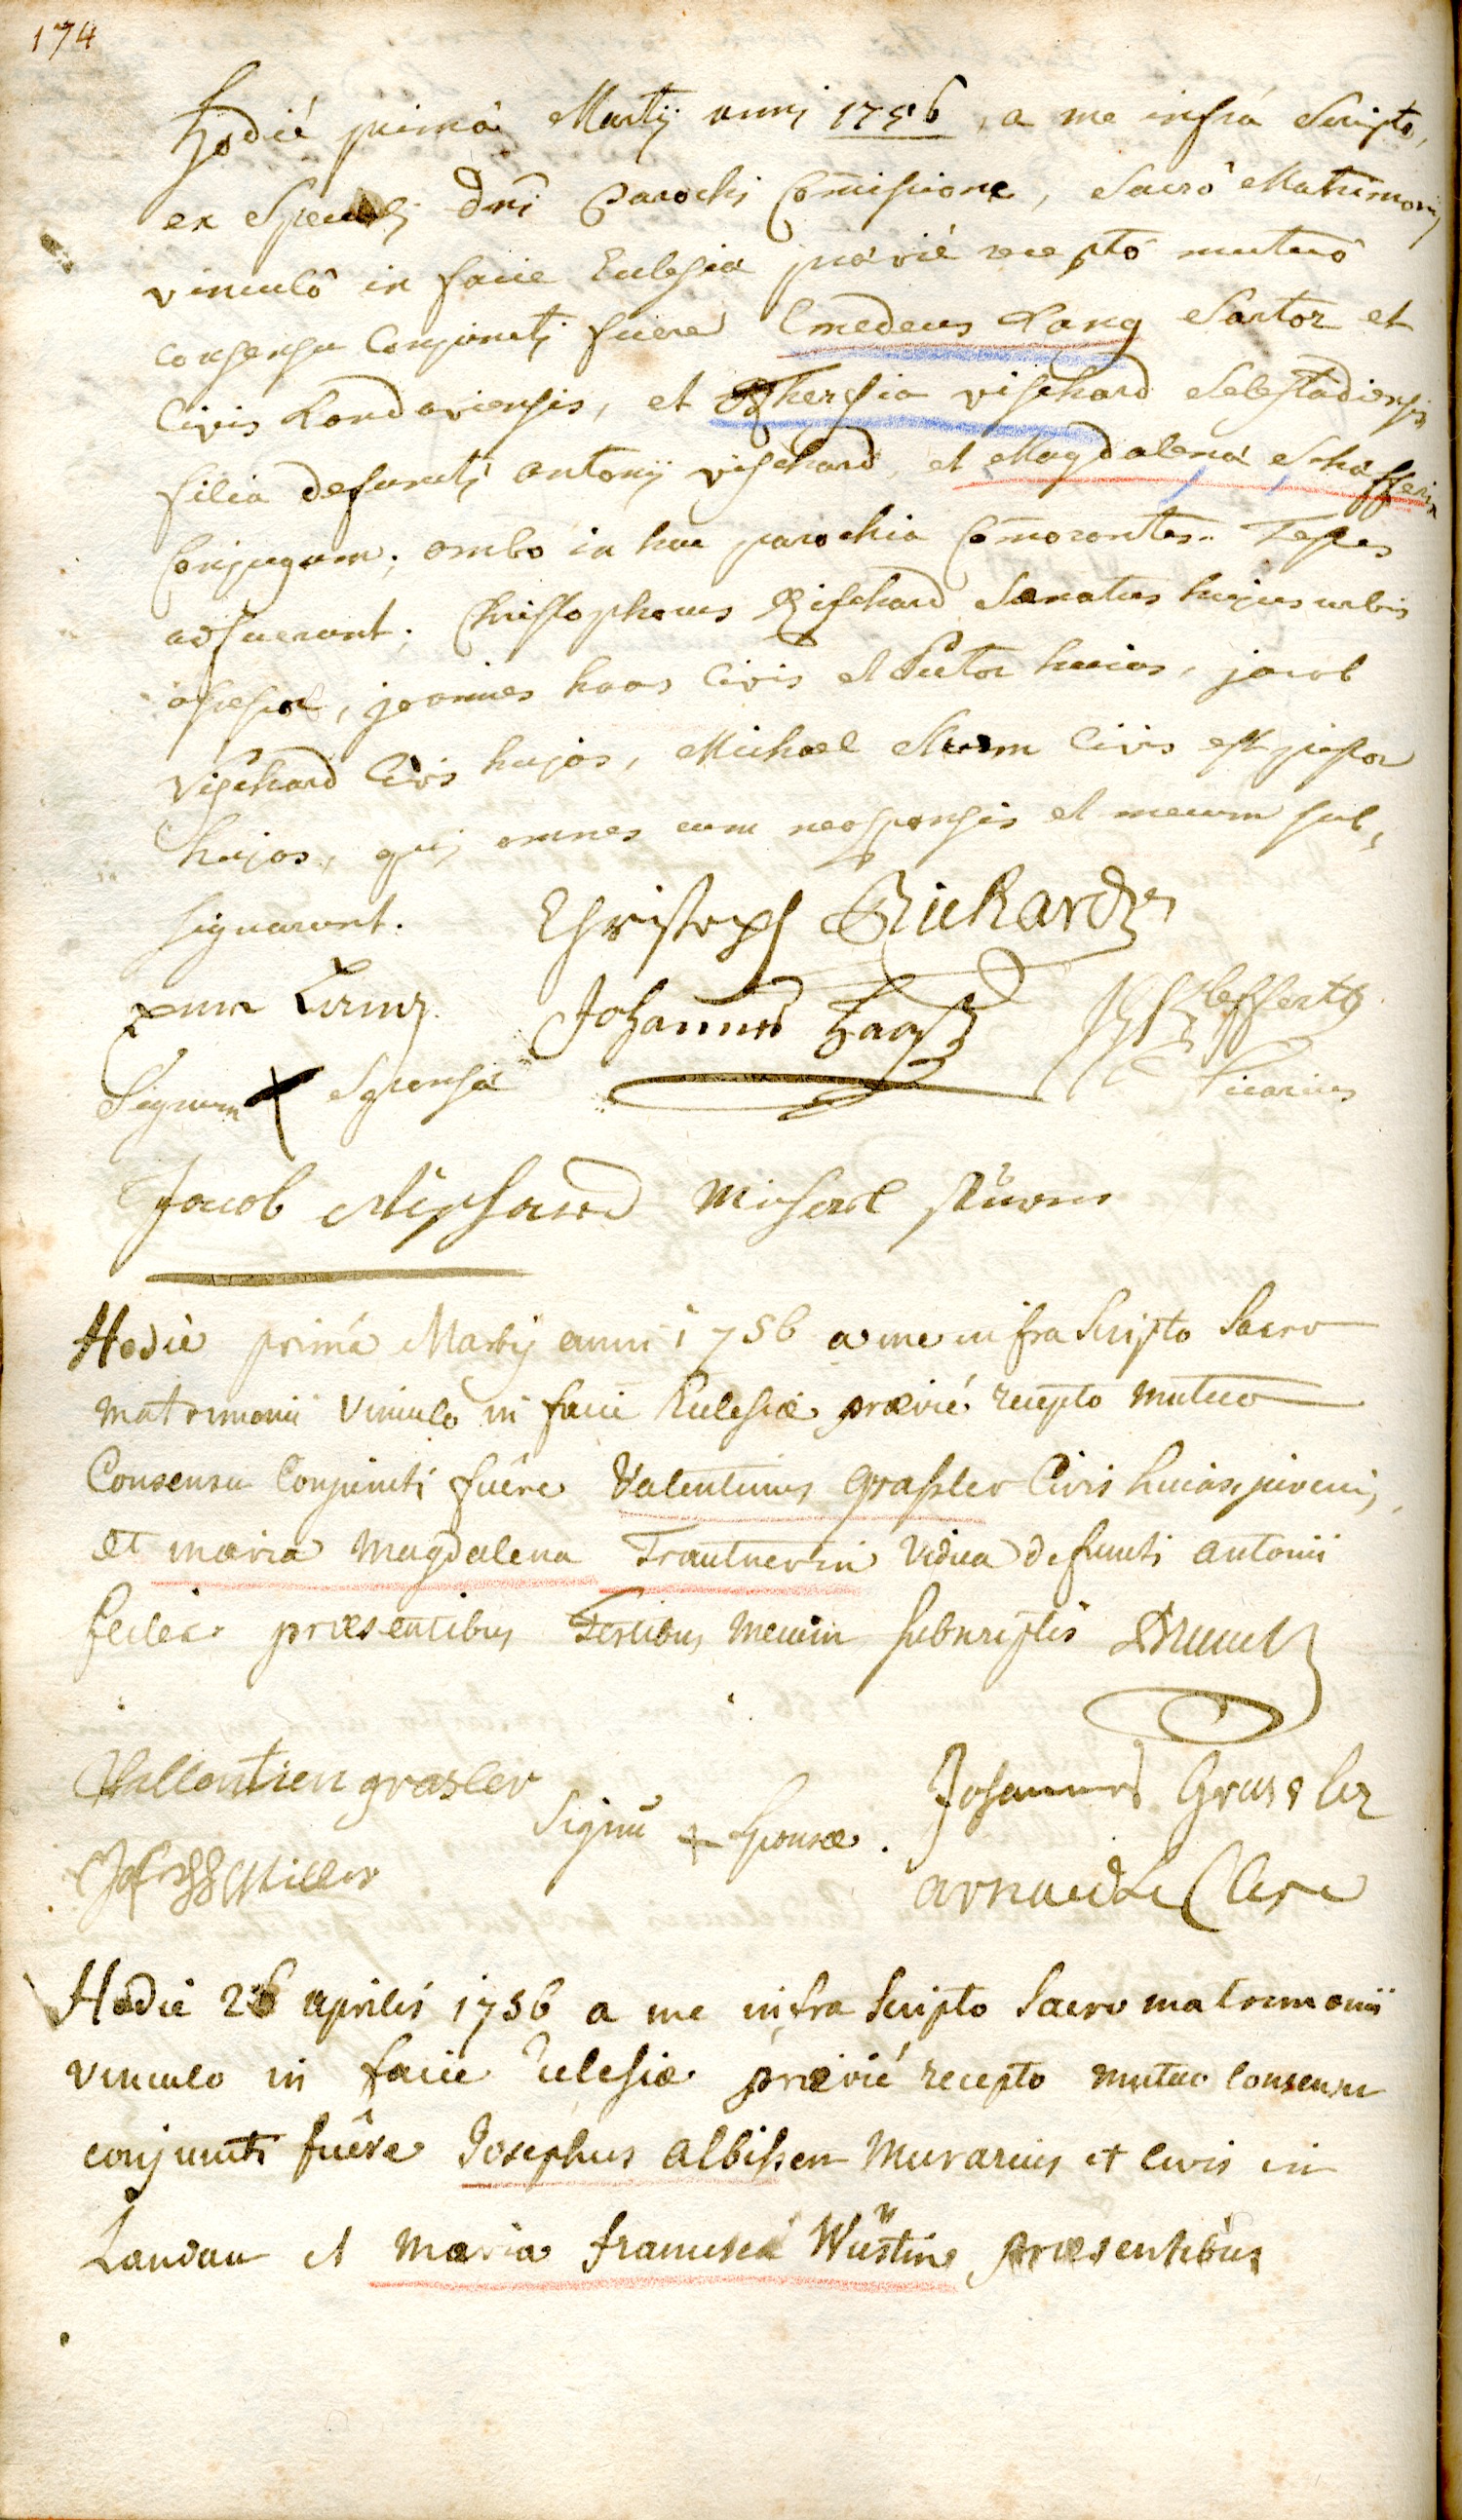 174
Hodié primâ Martij anni 1756, a me infrá Scripto,
ex Speciali Dni Parochi Comissione, Sacrô Matrimonij
vinculô in facie Eclesia pravié recepto mutuô
consensu Conjuncti fuere Emedeus Lang Sartor et
Civis Landaviensis, et Theresia vischard Selestadiensis
filia defuncti antonij vischard, et Magdalena Schafferin
Conjugum; ambo in hac parochia Comorantes. Testes
adfuerunt; Christophorus Rischard Senatus hujus urbis
assessor, joannes haas Civis et Sutor huias, jacob
Vischard Civis hujas, Michael Sturm Civis et pistor
hujas, qui omnes cum neosponsis et mecum sub,
signarunt. Christoph Richard
Lang Johannes Haas Kleffert
Signum + Sponsa Vicarius
Jacob Rischard Michael Sturm
Hodie primâ Martij anni 1756 a me infra Scripto Sacro
matrimonii Vinculo in facie Eclesiæ prævié recepto mutuo
Consensu Conjuncti fuêre Valentinus Grassler Civis huias, juvenis,
et maria Magdalena Trautnerin Vidua defuncti antonii
præsentibus Testibus mecum subscriptis
Vallentien grasler Johannes Grassler
Signu + Sponsæ.
Miller arnaud Le Clere
Hodie 26 aprilis 1756 a me infra Scripto Sacro matrimonii
vinculo in facie Eclesiæ prævié recepto mutuo consensu
conjuncti fuêre Josephus albissen Murarius et civis in
Landau et Maria francisca Wüstin præsentibus